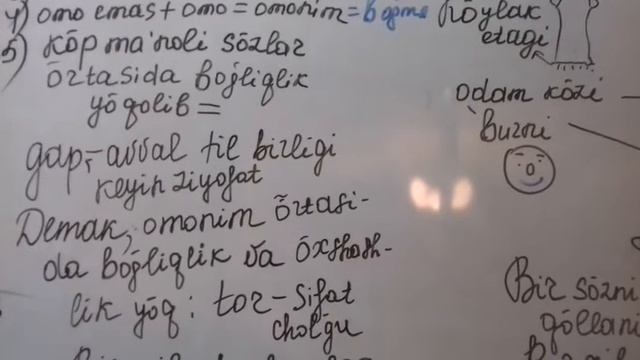 4) omo emas + omo = omonim =
5) Kōp ma'noli sōzlar
ōrtasida boģliqlik
yōqolib =
gap, - avval til birligi
keyin ziyofat
Demak, omonim ōrtasi-
da boģliqlik va ōxshash-
lik yōq: tor - sifat
cholģu
kōylak
etagi
odam kōzi
burni
Bir sōzni
qōllani